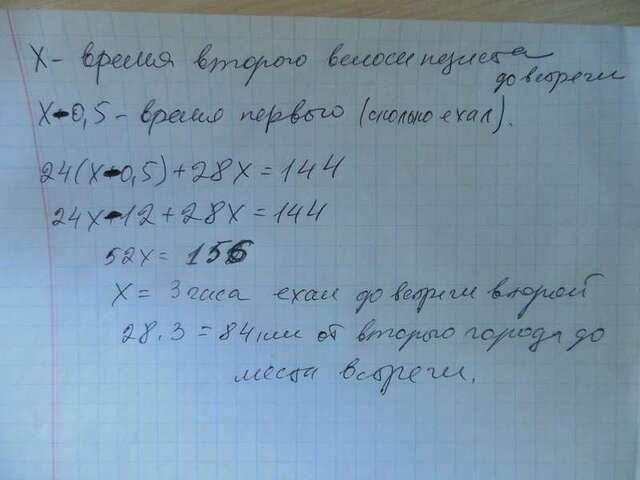 X - время второго велосипедиста
до встречи
X-0,5 - время первого (сколько ехал).
24(X-0,5)+28X=144
24X-12+28X=144
52X= 156
X= 3 часа ехал до встречи второй
28·3=84км от второго города до
места встречи.